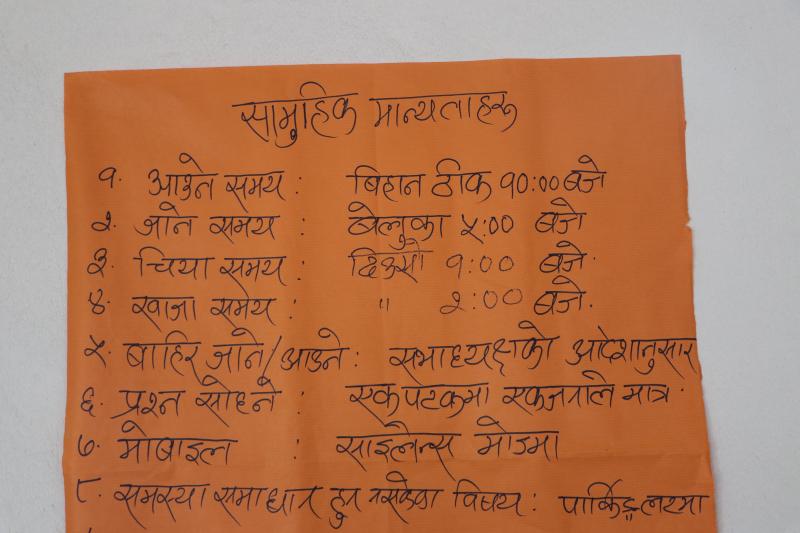 सामुहिक मान्यताहरु
१. आउने समय : बिहान ठीक १०:०० बजे
२. जाने समय : बेलुका ५:०० बजे
३. चिया समय : दिउसो १:०० बजे.
४. खाजा समय : " २:०० बजे.
५. बाहिर जाने/आउने : सभाध्यक्षको आदेशानुसार
६. प्रश्न सोध्ने : एक पटकमा एकजनाले मात्र.
७. मोबाइल : साइलेन्स मोडमा
८. समस्या समाधान हुन नसकेका विषय : पार्किङ्ग लटमा